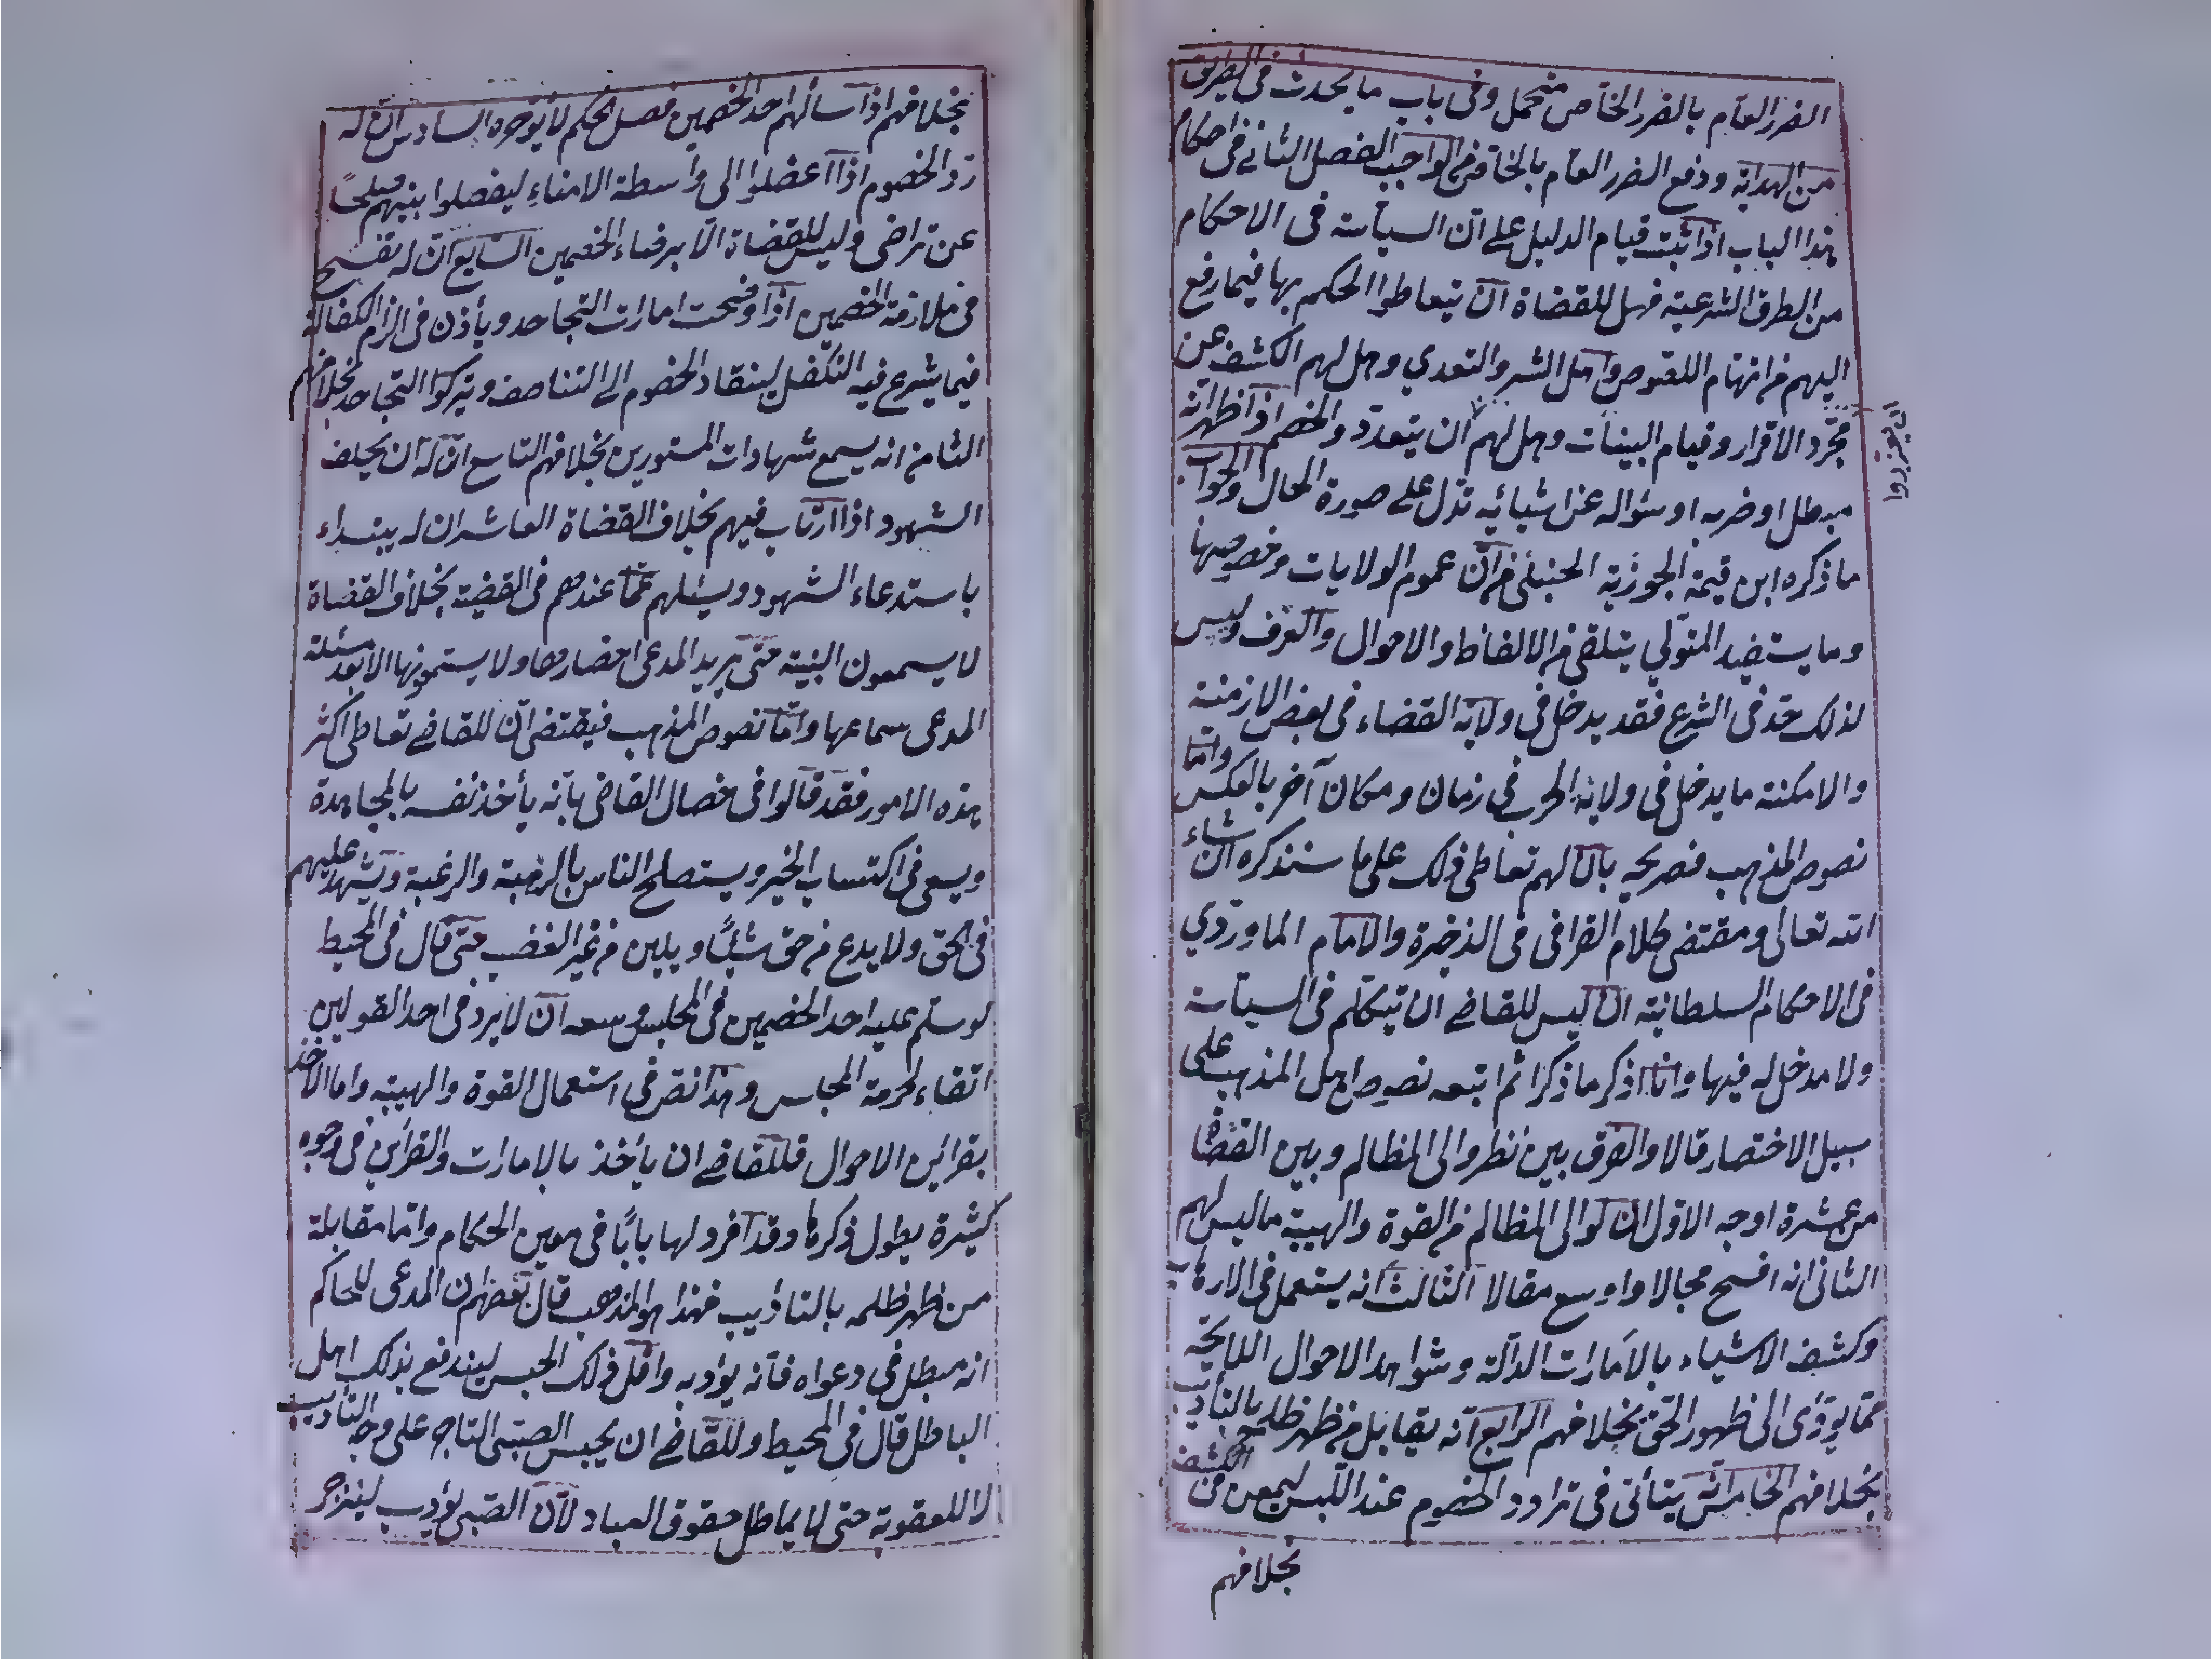 الضرر العام بالضرر الخاص متحمل وفى باب ما يحدث فى الطريق
من الهداية ودفع الضرر العام بالخاص من الواجب الفصل الثانى فى احكام
هذا الباب اذا ثبت قيام الدليل على ان السياسة فى الاحكام
من الطرق الشرعية فهل للقضاة ان يتعاطوا الحكم بها فيما رفع
اليهم من اتهام اللصوص واهل الشر والتعدي وهل لهم الكشف عن
مجرد الاقرار وقيام البينات وهل لهم ان يتعدد والخصم اذا ظهر انه
مبطل او ضربه او سؤاله عن اشياء تدل على صورة الحال والجواب
ما ذكره ابن قيمة الجوزية الحنبلى من ان عموم الولايات وخصوصها
وما يستفيد المتولي يتلقى من الالفاظ والاحوال والعرف وليس
لذلك حد فى الشرع فقد يدخل فى ولاية القضاء فى بعض الازمنة
والامكنة ما يدخل فى ولاية الحرب فى زمان ومكان آخر بالعكس واما
نصوص المذهب فصريحه بان لهم تعاطى ذلك على ما سنذكره ان شاء
الله تعالى ومقتضى كلام القرافى فى الذخيرة والامام الماوردي
فى الاحكام السلطانية ان ليس للقاضى ان يتكلم فى السياسة
ولا مدخل له فيها وانا اذكر ما ذكرا ثم اتبعه نصوص اهل المذهب على
سبيل الاختصار قالا والفرق بين نظر والى المظالم وبين القضاة
من عشرة اوجه الاول ان لوالى المظالم من القوة والهيبة ما ليس لهم
الثانى انه افسح مجالا واوسع مقالا الثالث انه يستعمل فى الارهاب
وكشف الاشياء بالامارات الدالة وشواهد الاحوال اللايحة
مما يؤدى الى ظهور الحق بخلافهم الرابع انه يقابل من ظهر ظلمه بالتأديب
بخلافهم الخامس انه يتأتى فى ترادد الخصوم عند اللبس ليمعن فى الكشف
بخلافهم
بخلافهم اذا سألهم احد الخصمين فصل الحكم لا يؤخره السادس ان له
رد الخصوم اذا اعضلوا الى واسطة الامناء ليفصلوا بينهم صلحًا
عن تراضى وليس للقضاة الا برضاء الخصمين السابع ان له يفسح
فى ملازمة الخصمين اذا وضحت امارات التجاحد ويأذن فى الزام الكفالة
فيما يشرع فيه التكفل لينقاد الخصوم الى التناصف ويتركوا التجاحد بخلافهم
الثامن انه يسمع شهادات المستورين بخلافهم التاسع ان له ان يحلف
الشهود اذا ارتاب فيهم بخلاف القضاة العاشر ان له يبتداء
باستدعاء الشهود ويسئلهم عما عندهم فى القضية بخلاف القضاة
لا يسمعون البينة حتى يريد المدعى احضارها ولا يستمعونها الا بعد مسئلة
المدعى سماعها واما نصوص المذهب فيقتضى ان للقاضى تعاطى اكثر
هذه الامور فقد قالوا فى خصال القاضى بانه يأخذ نفسه بالمجاهدة
ويسعى فى اكتساب الخير ويستصلح الناس بالرهبة والرغبة ويشهد عليهم
فى الحق ولا يدع من حق شيئًا ويلين من غير الغضب حتى قال فى المحيط
لو سلم عليه احد الخصمين فى المجلس وسعه ان لا يرد فى احد القولين
اتقاء لحرمة المجلس وهذا نص فى استعمال القوة والهيبة واما الاخذ
بقرائن الاحوال فللقاضى ان يأخذ بالامارات والقرائن فى وجوه
كثيرة يطول ذكرها وقد افرد لها بابًا فى معين الحكام واما مقابلة
من ظهر ظلمه بالتاديب فهذا هو المذهب قال بعضهم ان المدعى للحاكم
انه مبطل فى دعواه فانه يؤدبه واقل ذلك الحبس ليندفع بذلك اهل
الباطل قال فى المحيط وللقاضى ان يحبس الصبى التاجر على وجه التاديب
لا للعقوبة حتى لا يماطل حقوق العباد لان الصبى يؤدب لينزجر